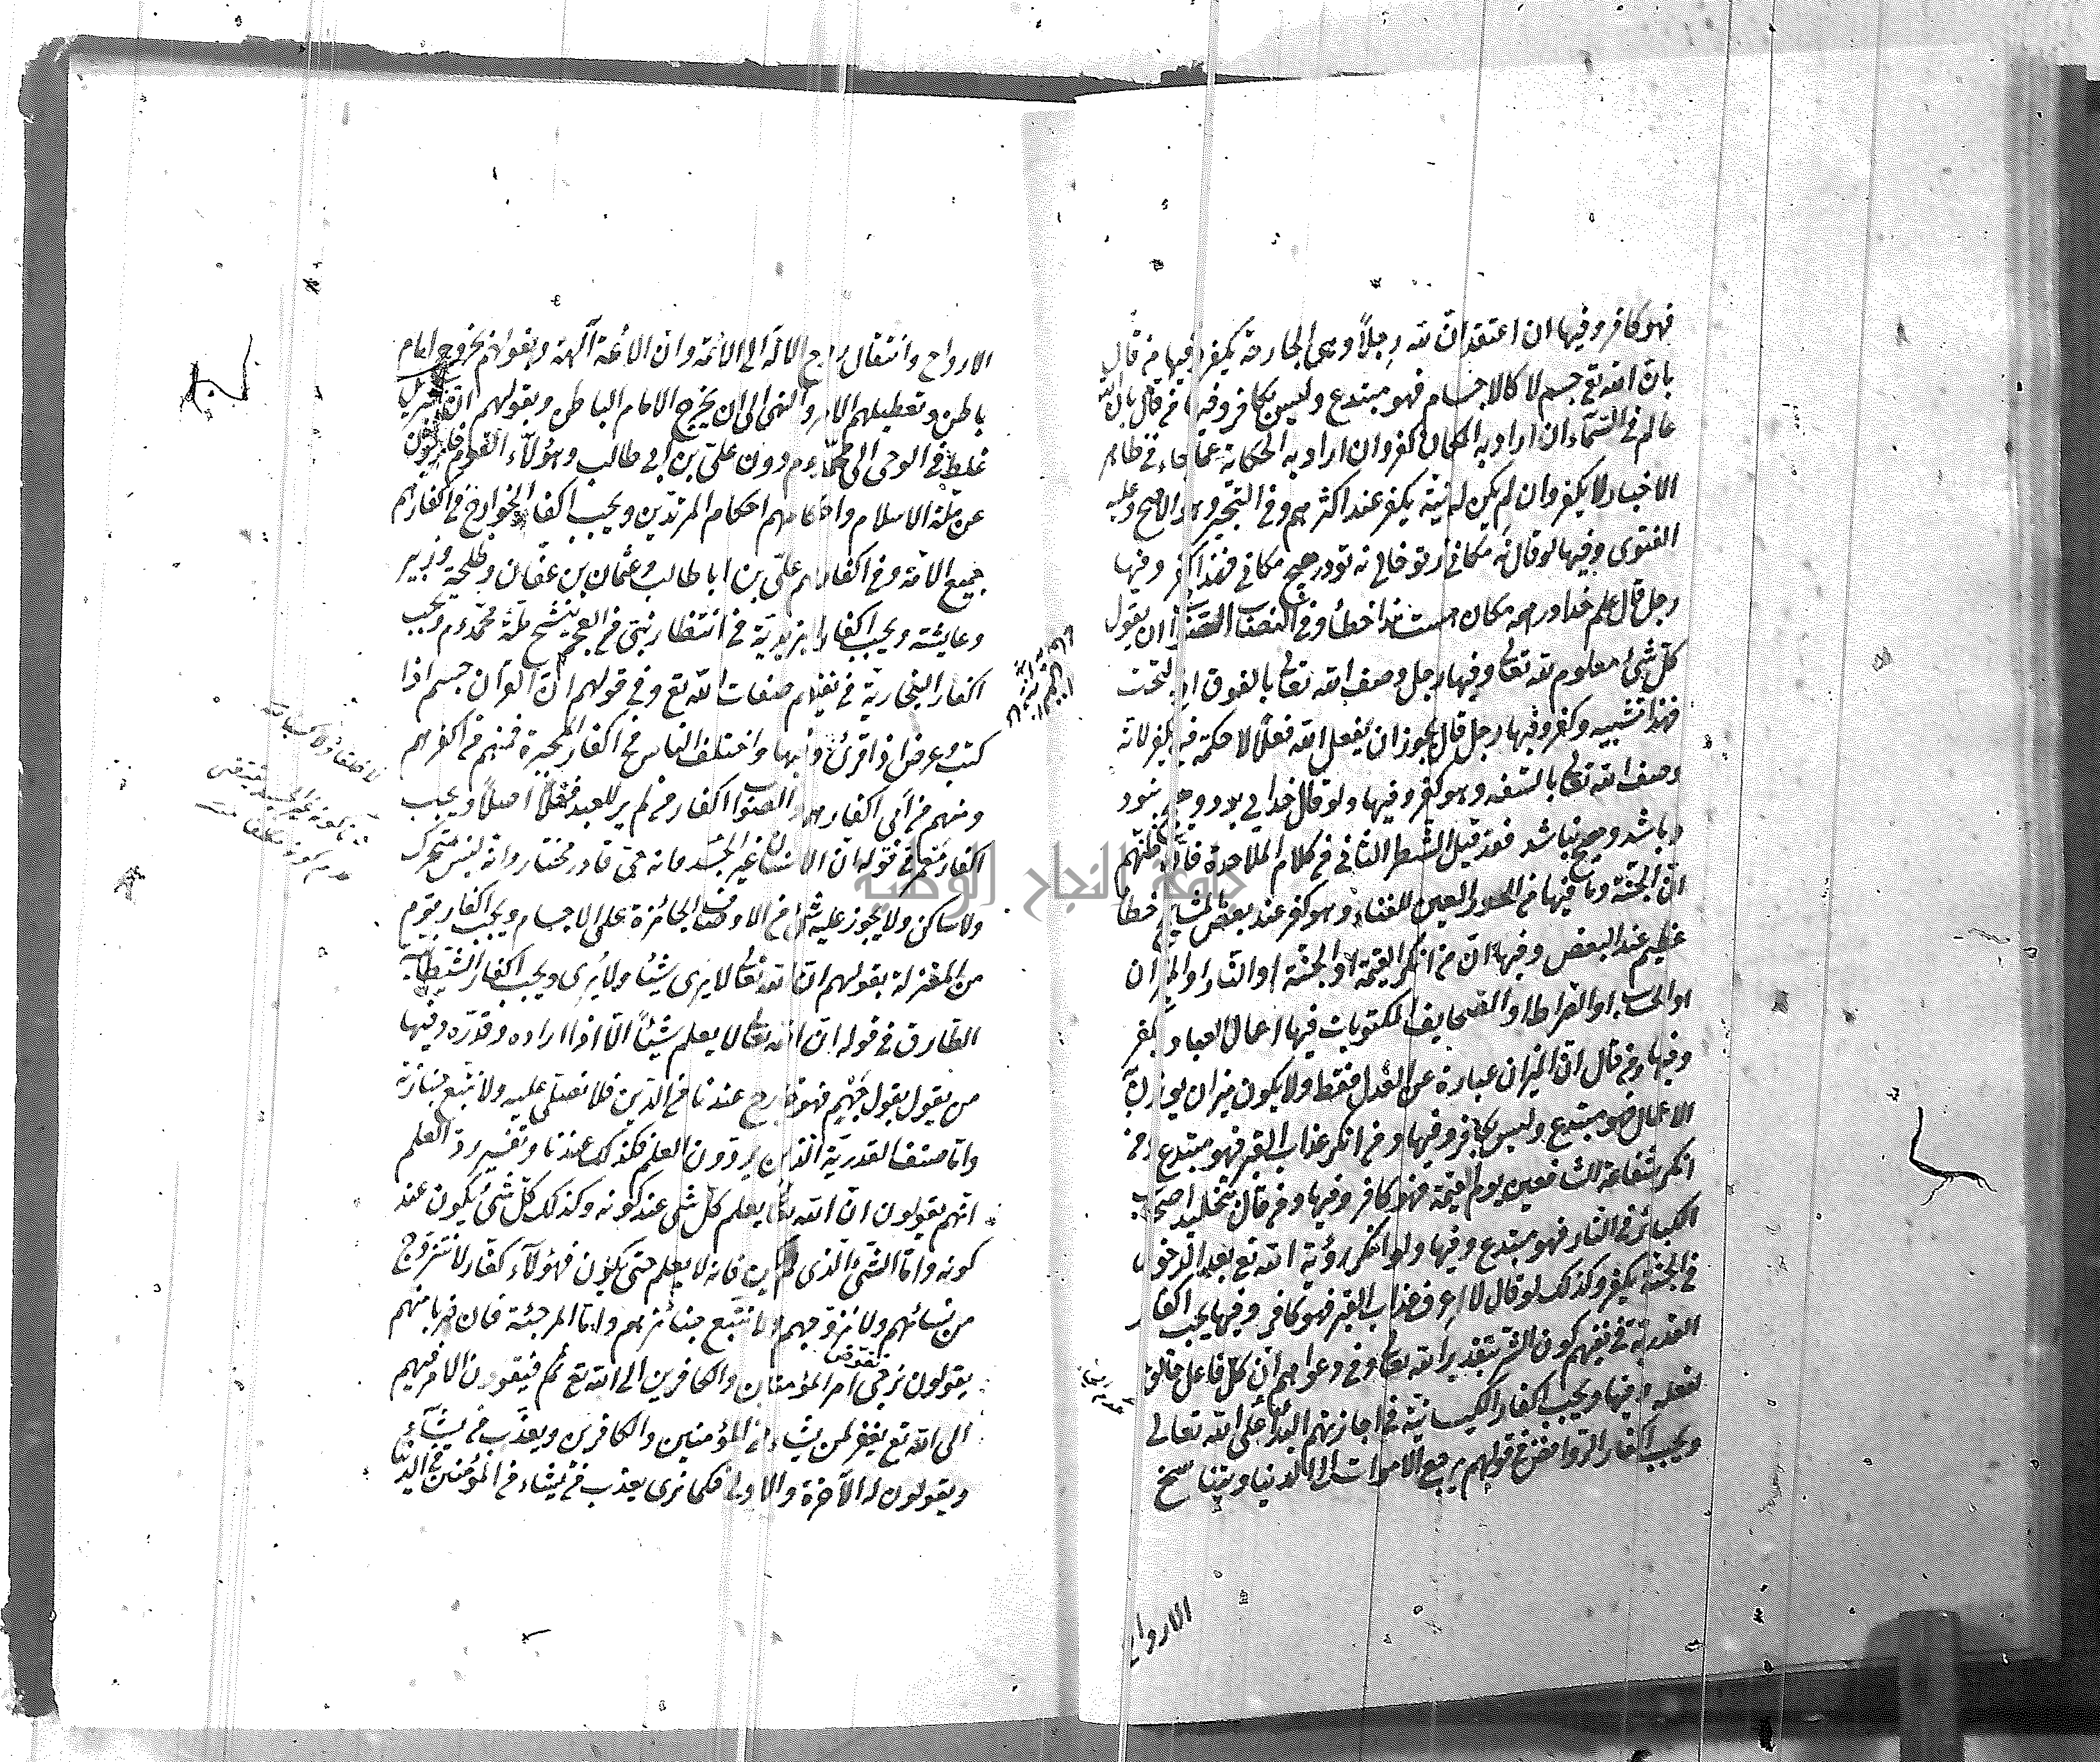 فهو كافر وفيها ان اعتقد ان لله رجلاً وهى الجارحة يكفر وفيها من قال
بان الله تع جسم لا كالاجسام فهو مبتدع وليس بكافر وفيها من قال بان الله
عالم فى السماء ان اراد به المكان كفر وان اراد به الحكاية عما جاء فى ظاهر
الاخبار لا يكفر وان لم يكن له نية يكفر عند اكثرهم وفى التجبير وهو الاصح وعليه
الفتوى وفيها لو قال نه مكانى ز تو خالى نه تو در هيچ مكانى فهذا كفر وفيها
رجل قال علم خدا در همه مكان هست هذا خطأ وفى النصاب الصواب ان يقول
كل شئ معلوم لله تعالى وفيها رجل وصف الله تعالى بالفوق او بالتحت
فهذا تشبيه وكفر وفيها رجل قال يجوز ان يفعل الله فعلا لا حكمة فيه يكفر لانه
وصف الله تعالى بالسفه وهو كفر وفيها ولو قال خداى بود وهيچ نبود
وباشد وهيچ نباشد فقد قيل الشطر الثانى من كلام الملاحدة فان ظنهم
ان الجنة وما فيها من الحور العين للفناء وهو كفر عند بعض المشايخ خطأ
عظيم عند البعض وفيها ان من انكر القيمة او الجنة او النار او الميزان
او الحساب او الصراط او الصحايف المكتوبات فيها اعمال العباد يكفر
وفيها ومن قال ان الميزان عبارة عن العدل فقط ولا يكون ميزان يوزن به
الاعمال فهو مبتدع وليس بكافر وفيها ومن انكر عذاب القبر فهو مبتدع ومن
انكر شفاعة الشافعين يوم القيمة فهو كافر وفيها ومن قال بتخليد اصحاب
الكبائر فى النار فهو مبتدع وفيها ولو انكر رؤية الله تع بعد الدخول
فى الجنة يكفر وكذلك لو قال لا اعرف عذاب القبر فهو كافر وفيها يجب اكفار
القدرية فى نفيهم كون الشر بتقدير الله تعالى وفى دعواهم ان كل فاعل خالق
لفعله وفيها ويجب اكفار الكيسانية فى اجازتهم البداء على الله تعالى
ويجب اكفار الروافض فى قولهم برجع الاموات الى الدنيا وبتناسخ
الارواح
الارواح وانتقال روح الاله الى الائمة وان الائمة آلهة وبقولهم بخروج امام
باطن وتعطيلهم الامر والنهى الى ان يخرج الامام الباطن وبقولهم ان جبريل
غلط فى الوحى الى محمد عم دون على بن ابى طالب وهؤلاء القوم خارجون
عن ملة الاسلام واحكامهم احكام المرتدين ويجب اكفار الخوارج فى اكفارهم
جميع الامة وفى اكفارهم على بن ابا طالب وعثمان بن عفان وطلحة وزبير
وعايشة ويجب اكفار اليزيدية فى انتظار نبى من العجم ينسخ ملة محمد عم ويجب
اكفار النجارية فى نفيهم صفات الله تع وفى قولهم ان القران جسم اذا
كتب وعرض اذا قرئ وفيها واختلف الناس فى اكفار المجبرة فمنهم من اكفرهم
ومنهم من ابى اكفارهم والصواب اكفار من لم ير للعبد فعلاً اصلاً ويجب
اكفار معمر فى قوله ان الانسان غير الجسد وانه حى قادر مختار وانه ليس بمتحرك
ولا ساكن ولا يجوز عليه شئ من الاوصاف الجائزة على الاجسام ويجب اكفار قوم
من المعتزلة بقولهم ان الله تعالى لا يرى شيئا ولا يُرى ويجب اكفار الشيطانية
الطارق فى قوله ان الله تعالى لا يعلم شيئاً الا اذا اراده وقدره وفيها
من يقول بقول جهم فهو خارج عندنا من الدين فلا نصلى عليه ولا نتبع جنازته
واما صنف القدرية الذين يردون العلم فكذلك عندنا وتفسير رد العلم
انهم يقولون ان الله تعالى يعلم كل شئ عند كونه وكذلك كل شئ يكون عند
كونه واما الشئ الذى لم يكن فانه لا يعلم حتى يكون فهؤلاء كفار لا نتزوج
من نسائهم ولا نزوجهم ولا نتبع جنائزهم واما المرجئة فان ضربا منهم
يقولون نرجى امر المؤمنين والكافرين الى الله تع ثم فيقولون الامر فيهم
الى الله تع يغفر لمن يشاء من المؤمنين والكافرين ويعذب من يشاء
ويقولون له الآخرة والاولى فكما نرى يعذب من يشاء من المؤمنين فى الدنيا
جامعة النجاح الوطنية